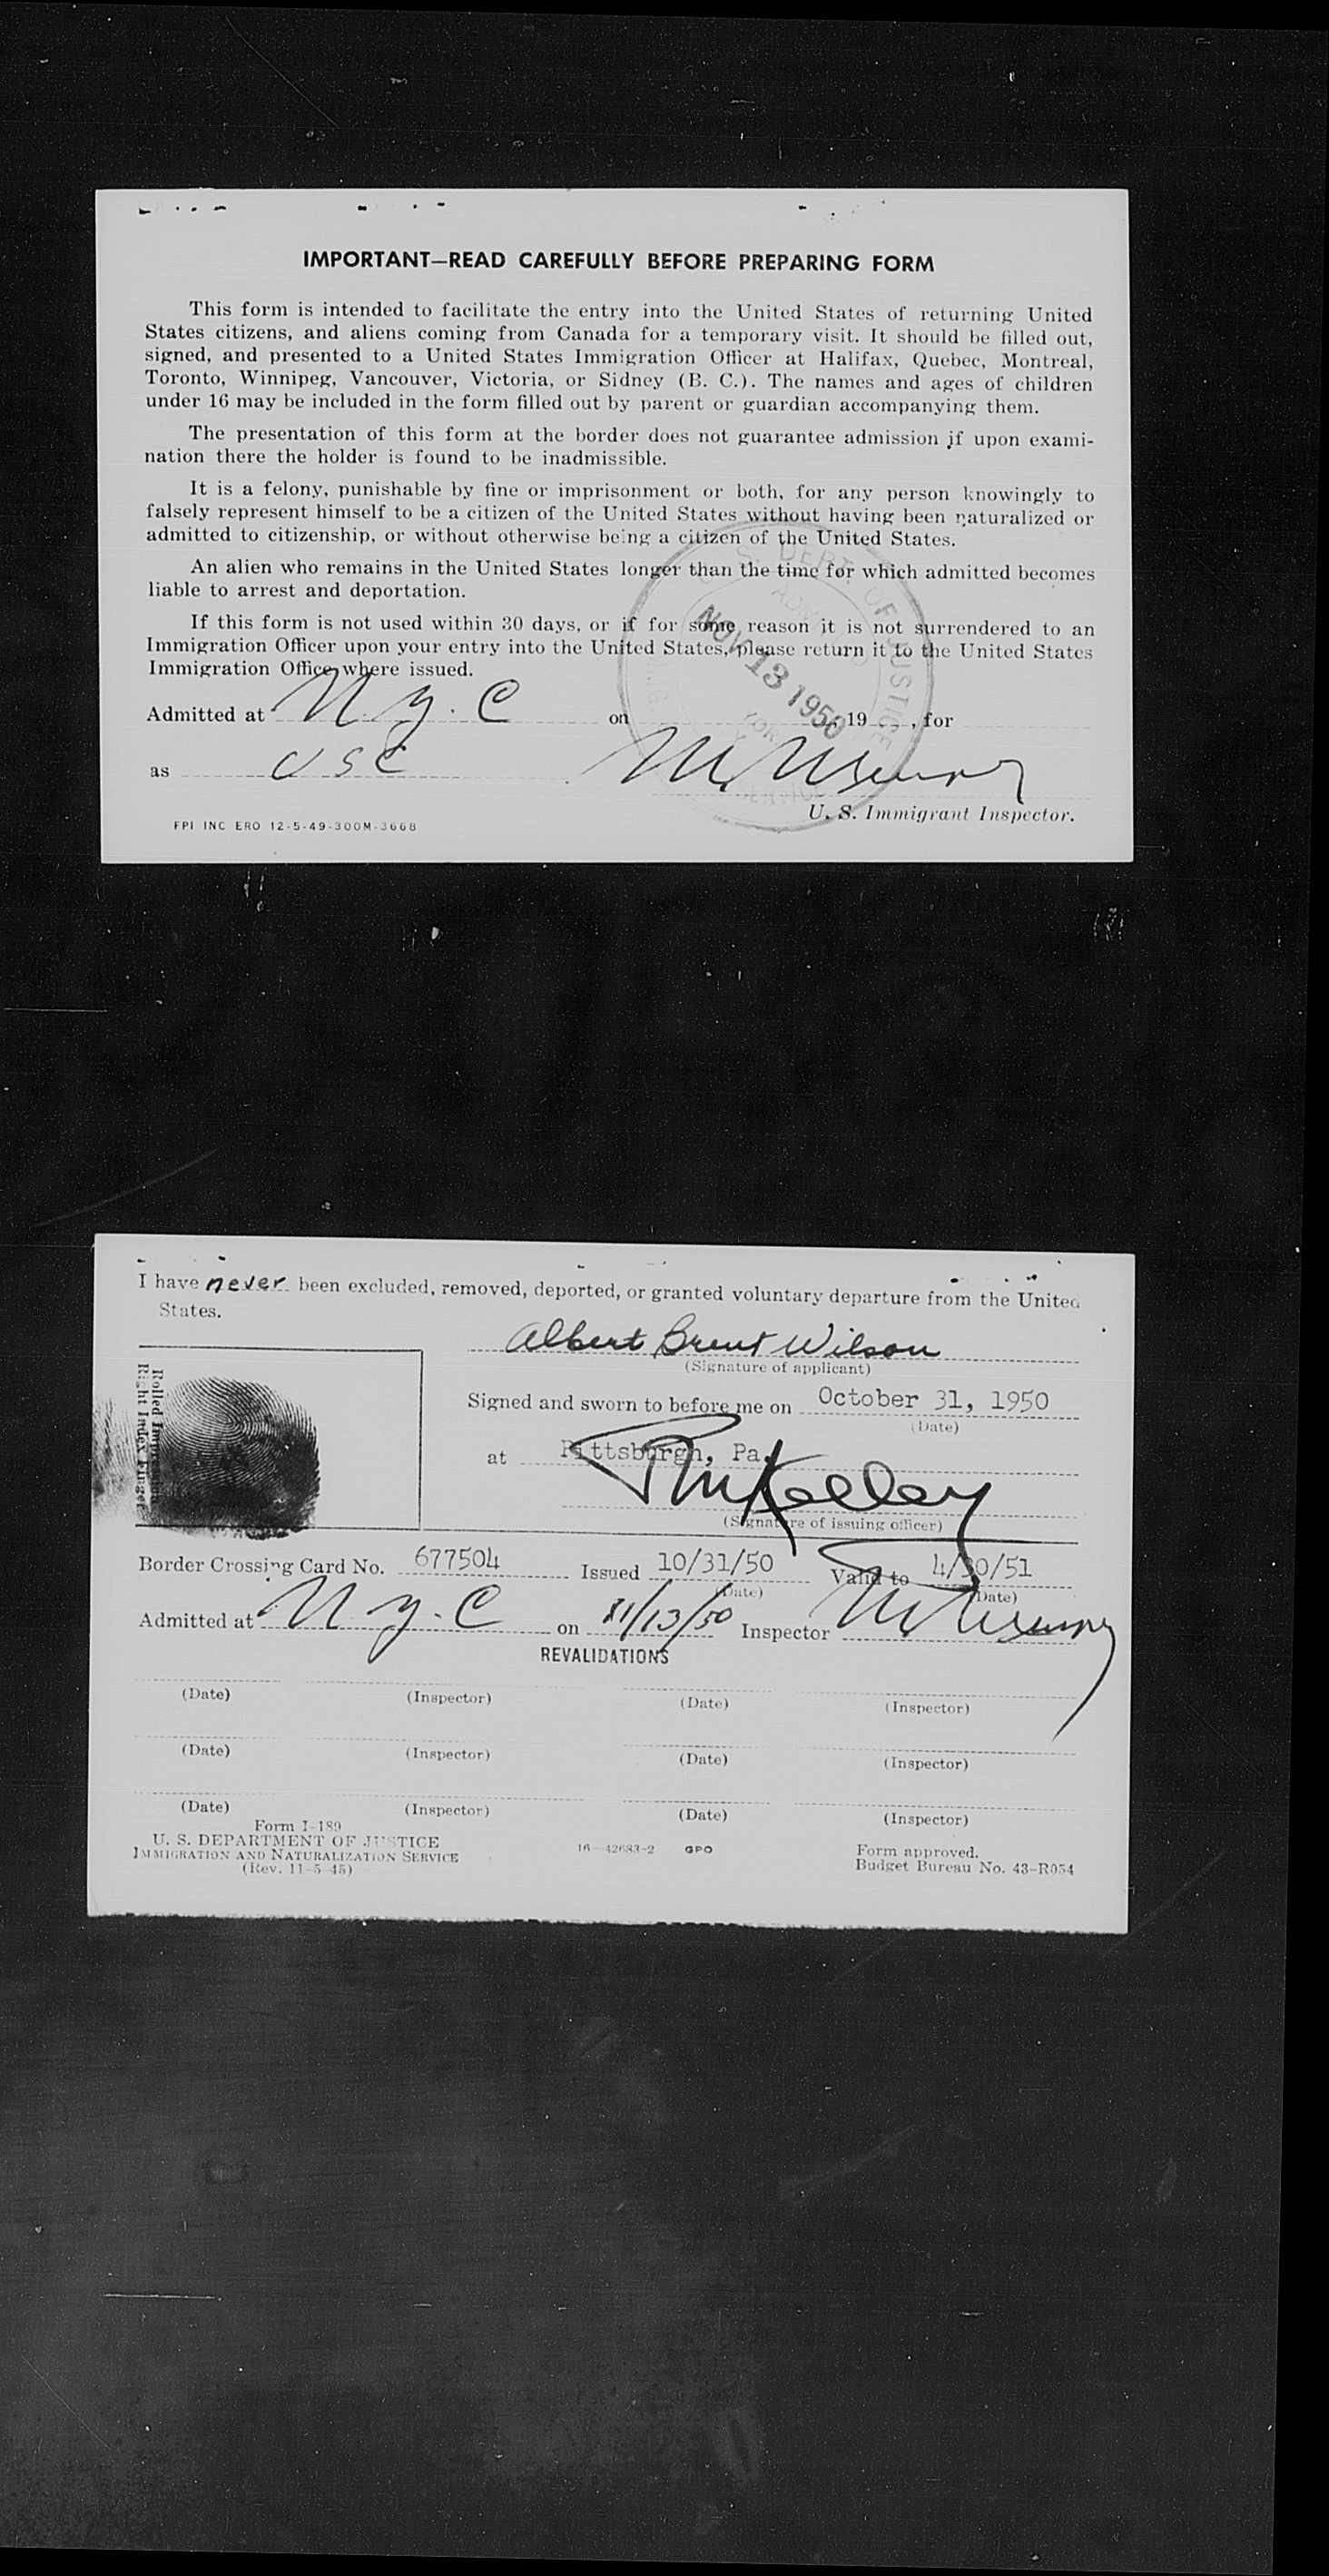 IMPORTANT—READ CAREFULLY BEFORE PREPARING FORM
This form is intended to facilitate the entry into the United States of returning United
States citizens, and aliens coming from Canada for a temporary visit. It should be filled out,
signed, and presented to a United States Immigration Officer at Halifax, Quebec, Montreal,
Toronto, Winnipeg, Vancouver, Victoria, or Sidney (B. C.). The names and ages of children
under 16 may be included in the form filled out by parent or guardian accompanying them.
The presentation of this form at the border does not guarantee admission if upon exami-
nation there the holder is found to be inadmissible.
It is a felony, punishable by fine or imprisonment or both, for any person knowingly to
falsely represent himself to be a citizen of the United States without having been naturalized or
admitted to citizenship, or without otherwise being a citizen of the United States.
An alien who remains in the United States longer than the time for which admitted becomes
liable to arrest and deportation.
If this form is not used within 30 days, or if for some reason it is not surrendered to an
Immigration Officer upon your entry into the United States, please return it to the United States
Immigration Office where issued.
NOV 13 1950
Admitted at N.Y.C on , 19 , for
as USC
U. S. Immigrant Inspector.
FPI INC ERO 12-5-49-300M-3668
I have never been excluded, removed, deported, or granted voluntary departure from the United
States.
Albert Brent Wilson
(Signature of applicant)
Rolled Impression
Right Index Finger
Signed and sworn to before me on October 31, 1950
(Date)
at Pittsburgh, Pa.
(Signature of issuing officer)
Border Crossing Card No. 677504 Issued 10/31/50 Valid to 4/30/51
(Date) (Date)
Admitted at N.Y.C on 11/13/50 Inspector
REVALIDATIONS
(Date) (Inspector) (Date) (Inspector)
(Date) (Inspector) (Date) (Inspector)
(Date) (Inspector) (Date) (Inspector)
Form I-189
U. S. DEPARTMENT OF JUSTICE
IMMIGRATION AND NATURALIZATION SERVICE
(Rev. 11-5-45)
16—42683-2 GPO
Form approved.
Budget Bureau No. 43-R054